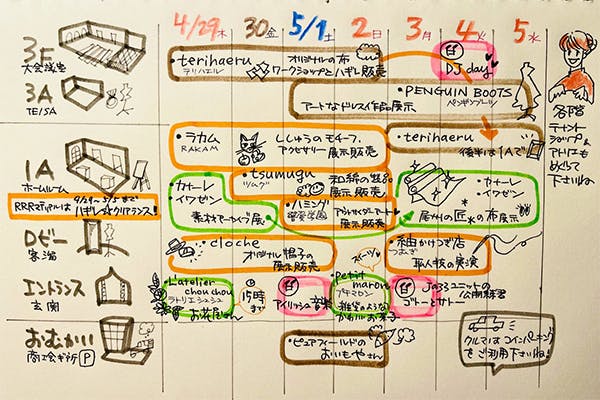 4/29木 30金 5/1土 2日 3月 4火 5水
3F
大会議室
・terihaeru
テリハエル
オリジナルの布
ワークショップとハギレ販売
DJ day
3A
TE/SA
・PENGUIN BOOTS
ペンギンブーツ
アートなドレス作品展示
各階
テナント
ショップ&
アトリエも
めぐって
下さいね
1A
ホームルーム
RRRマテリアルは4/29〜5/5まで
ハギレ☆クリアランス!
・ラカム
RAKAM
ししゅうのモチーフ、
アクセサリー
展示販売
・terihaeru
後半は1Aで
・tsumugu
ツムグ
展示販売
・カナーレ
・イワゼン
素材アーカイブ展
・ハミング
アウトサイダーアート
展示販売
・カナーレ
・イワゼン
尾州の匠の布展示
Dロビー
・cloche
オリジナル帽子の
展示販売
・紬かけつぎ店
つむぎ
職人技の実演
エントランス
玄関
・L'atelier
chouchou
ラトリエシュシュ
お花屋さん
15時
まで
アイリッシュ音楽
・petit
marron
プチマロン
雑貨のような
かわいいお菓子
Jazzユニットの
公開練習
ゴトーとサトー
おむかい
商工会ギ所 P
・ピュアフィールドの
おいもやさん
クルマはコインパーキング
をご利用下さいね!